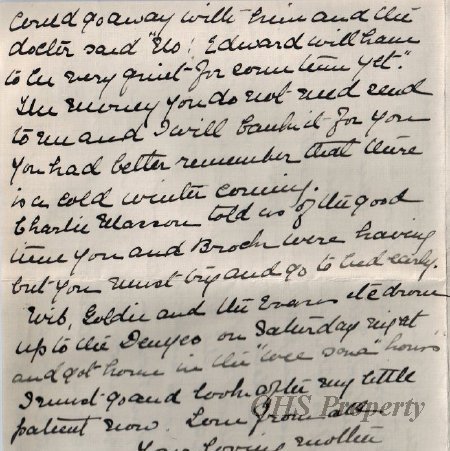 could go away with him and the
doctor said "No! Edward will have
to be very quiet for some time yet."
The money you do not need send
to me and I will bank it for you
You had better remember that there
is a cold winter coming.
Charlie Masson told us of the good
time you and Brock were having
but you must try and go to bed early.
Wib, Goldie and the Evans etc drove
up to the on Saturday night
and got home in the "wee sma" hours
I must go and look after my little
patient now. Love from all
OHS Property
Your loving mother